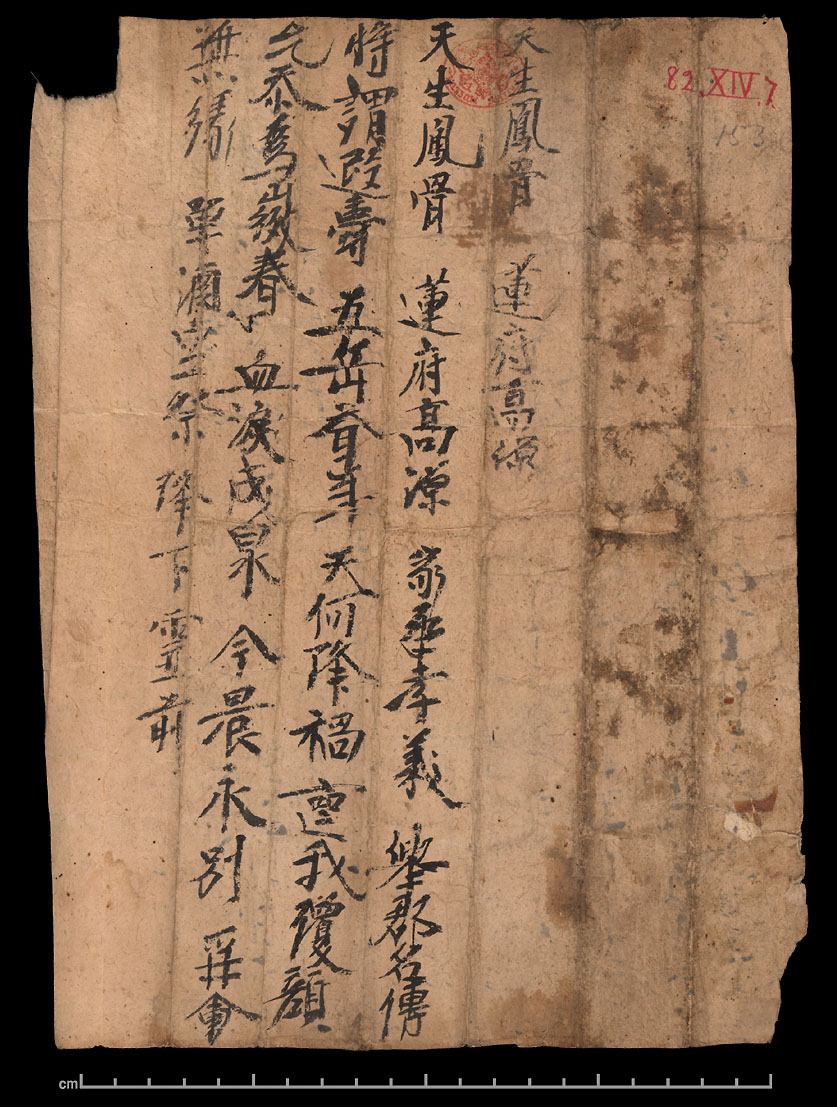 82.XIV.7
153
天生鳳骨 蓮府高源
天生鳳骨 蓮府高源 家承孝義 舉郡名傳
將謂遐壽 五岳齊年 天何降禍 我瓊顏
忝爲微眷 血淚成泉 今晨永別 再會
無緣 單酒祭 降下靈前
cm